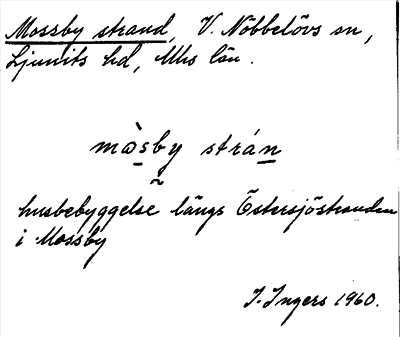 Mossby strand, V. Nöbbelövs sn,
Ljunits hd, Mhs län.
mòsby strán
husbebyggelse längs Östersjöstranden
i Mossby
I. Ingers 1960.